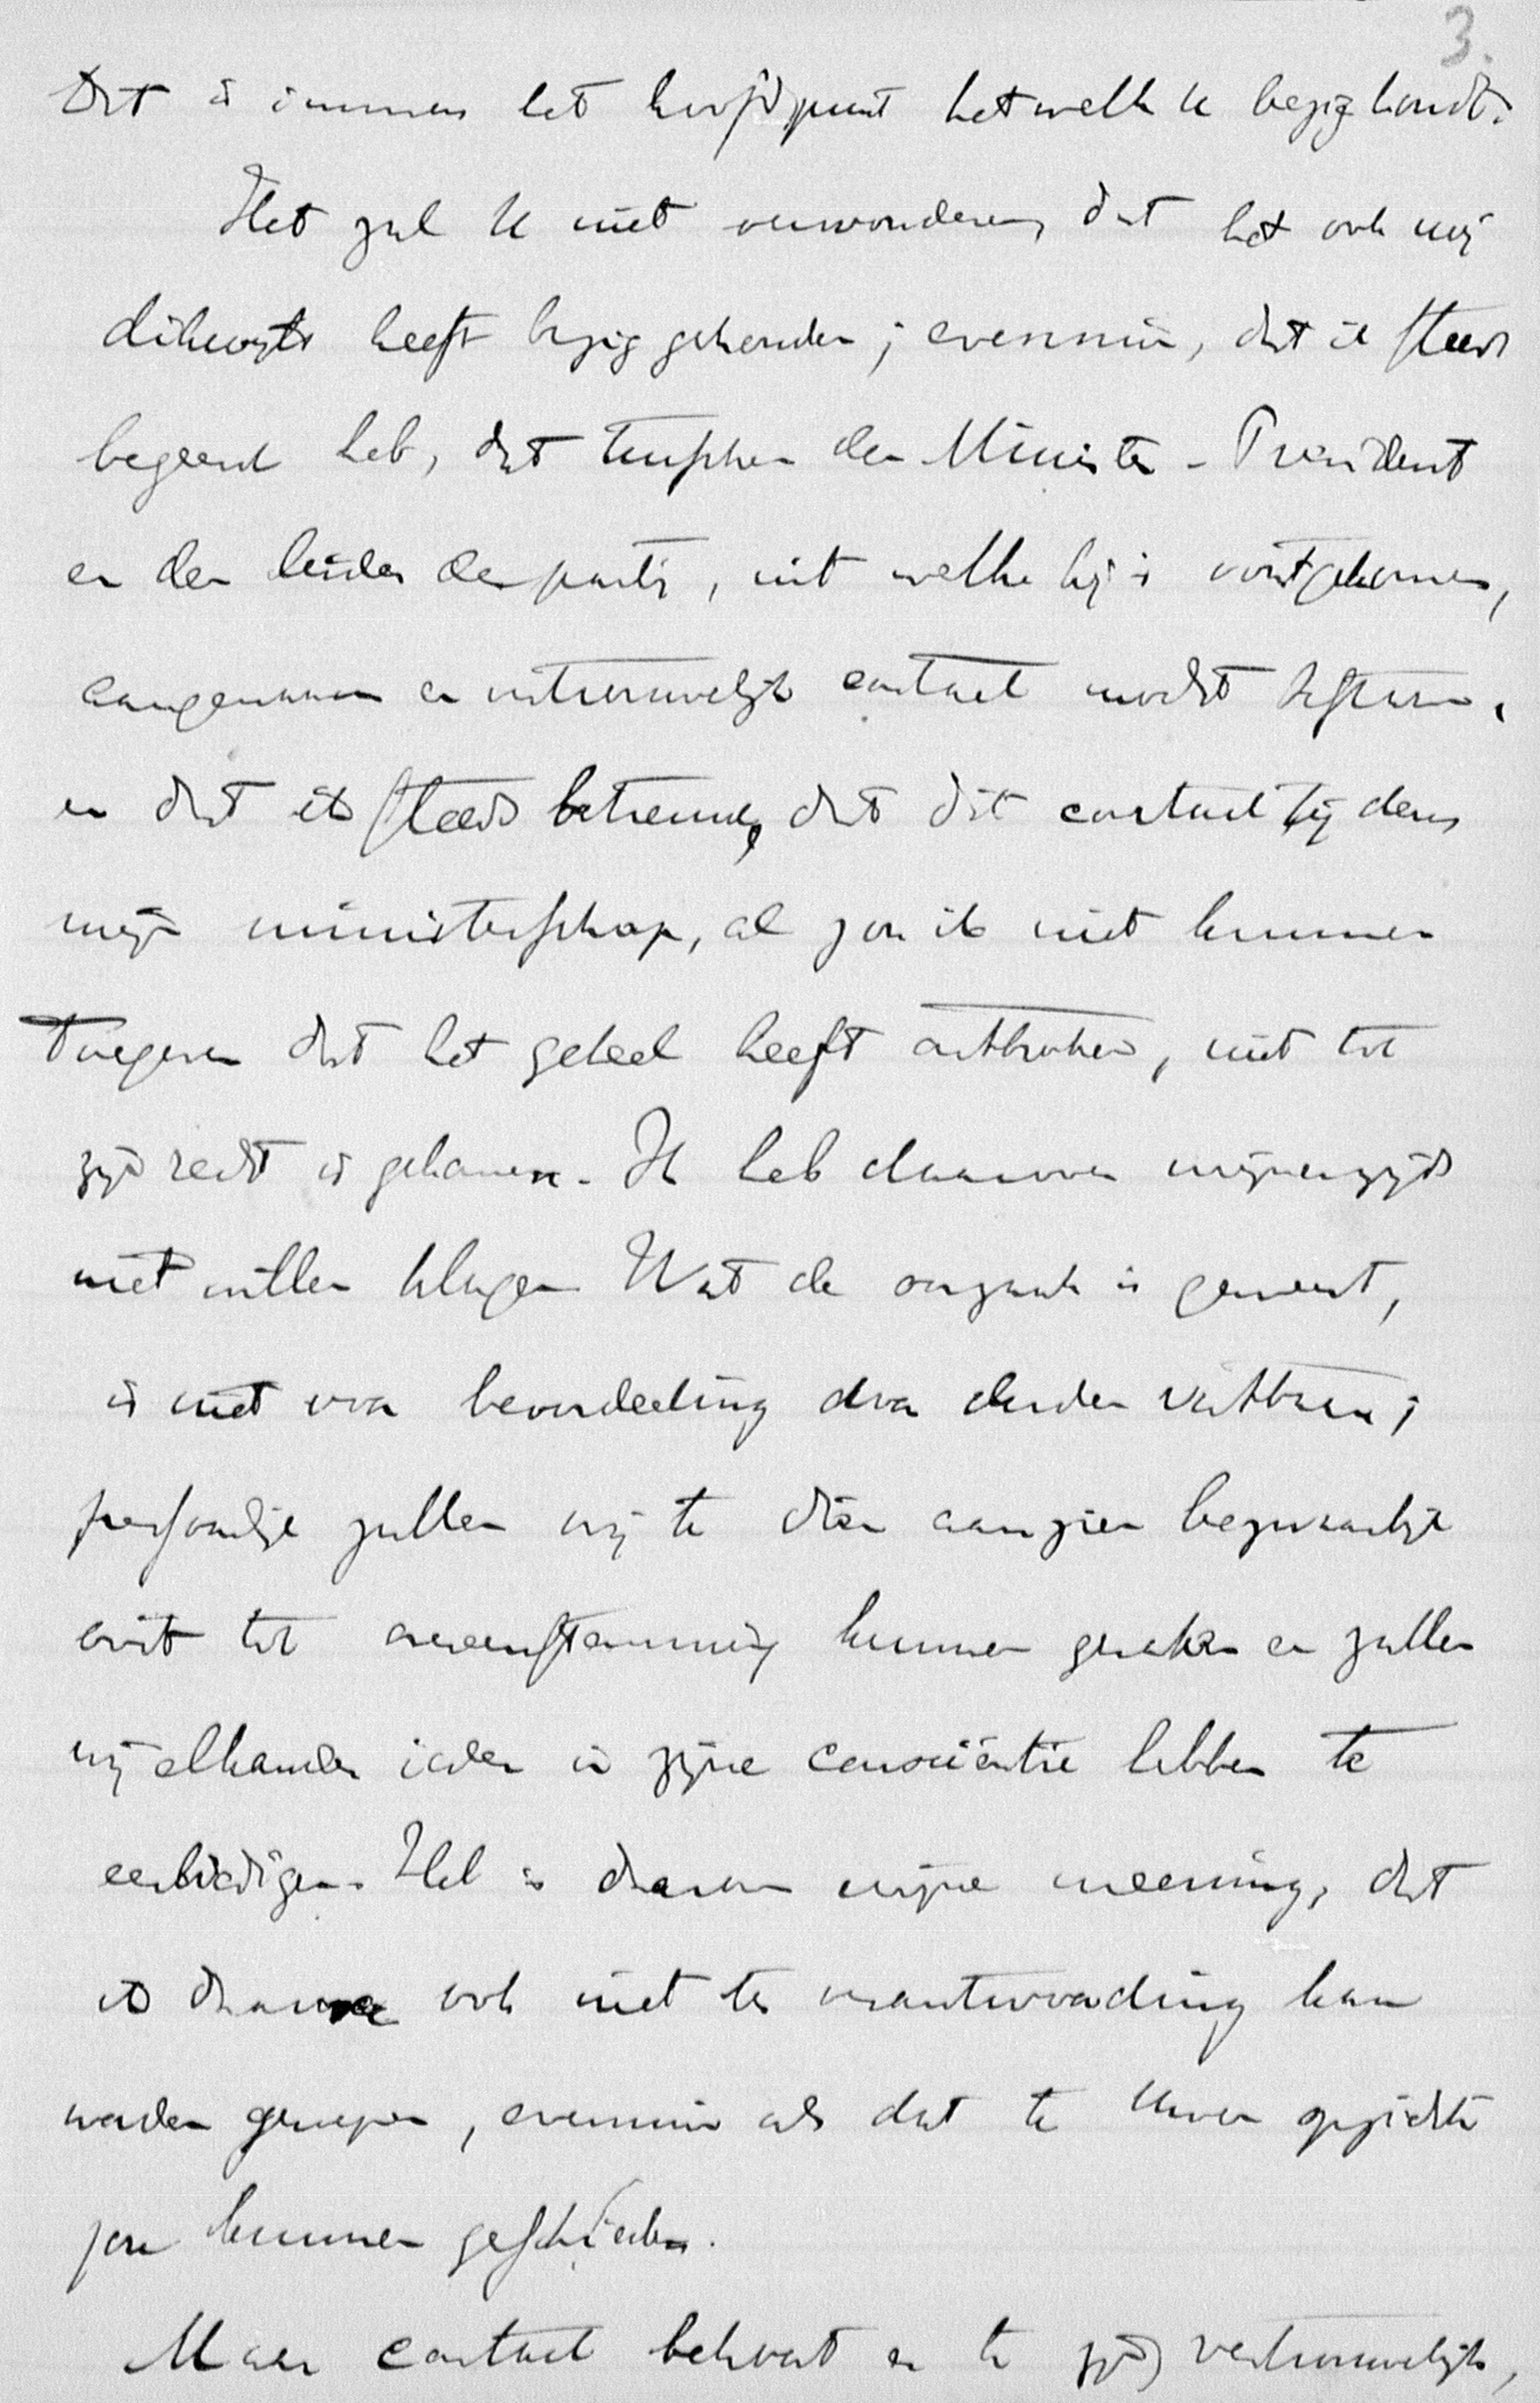 3.
Dit is immers het hoofdpunt hetwelk U bezig houdt.
Het zal U niet verwonderen, dat het ook mij
dikwijls heeft bezig gehouden; evenmin, dat ik steeds
begeerd heb, dat tusschen den Minister-President
en den leider der partij, uit welke hij is voortgekomen,
aangenaam en vertrouwelijk contact mocht bestaan,
en dat ik steeds betreurde, dat dit contact tijdens
mijn ministerschap, al zou ik niet kunnen
toegeven dat het geheel heeft ontbroken, niet tot
zijn recht is gekomen. Ik heb daarover mijnerzijds
niet willen klagen. Wat de oorzaak is geweest,
is niet voor beoordeeling door derden vatbaar;
persoonlijk zullen wij te dien aanzien bezwaarlijk
ooit tot overeenstemming kunnen geraken en zullen
wij elkander ieder in zijne consciëntie hebben te
eerbiedigen. Het is daarom mijne meening, dat
ik daarvoor ook niet ter verantwoording kan
worden geroepen, evenmin als dat te Uwen opzichte
zou kunnen geschieden.
Maar contact behoort er te zijn, vertrouwelijk,